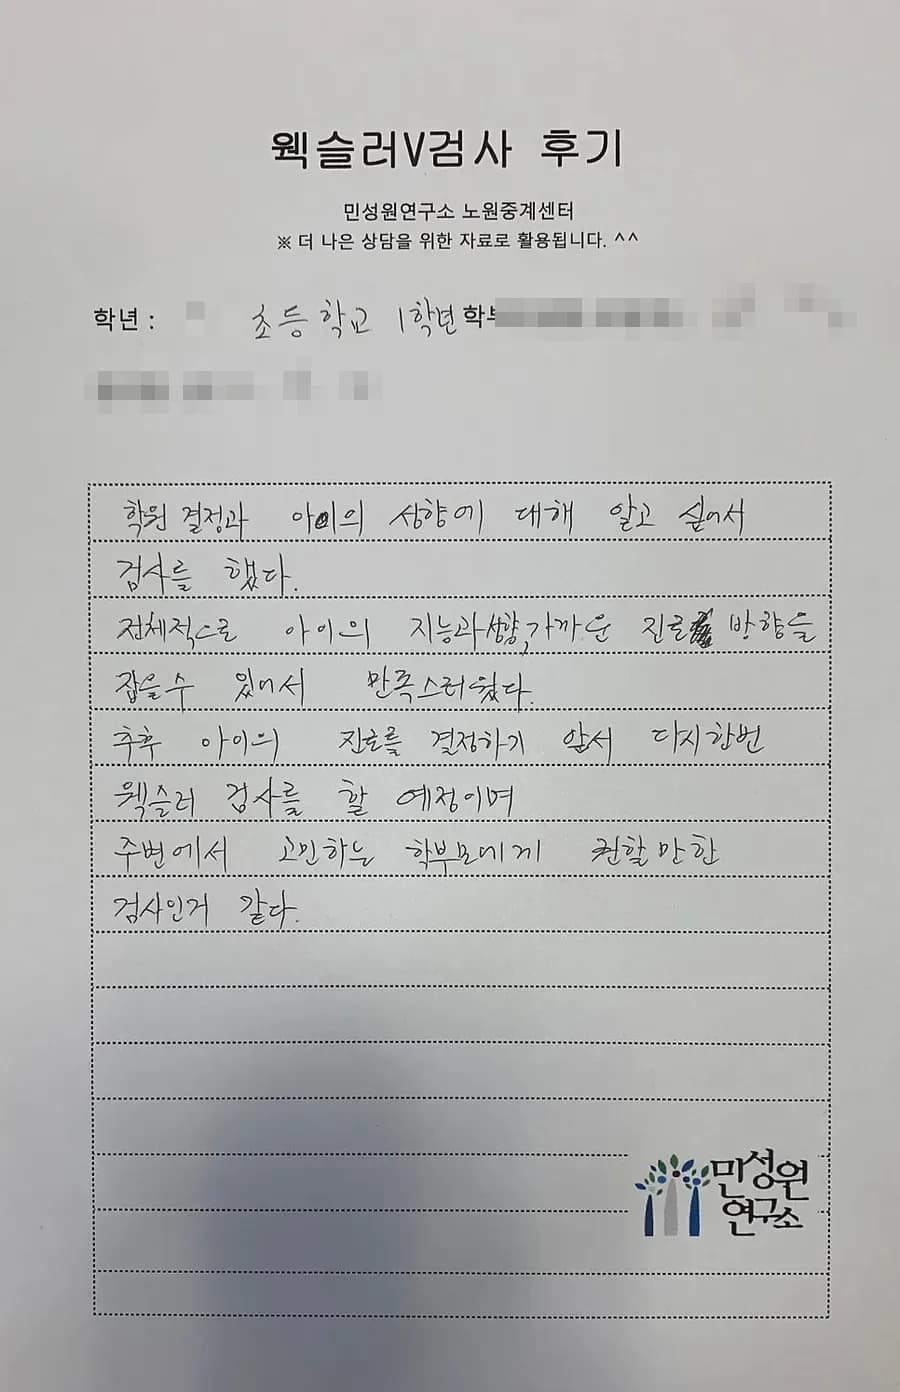 웩슬러V검사 후기
민성원연구소 노원중계센터
※ 더 나은 상담을 위한 자료로 활용됩니다. ^^
학년 : 초등학교 1학년 학부
학원 결정과 아이의 성향에 대해 알고 싶어서
검사를 했다.
전체적으로 아이의 지능과 성향, 가까운 진로 방향을
잡을수 있어서 만족스러웠다.
추후 아이의 진로를 결정하기 앞서 다시한번
웩슬러 검사를 할 예정이며
주변에서 고민하는 학부모에게 권할만한
검사인거 같다.
민성원
연구소